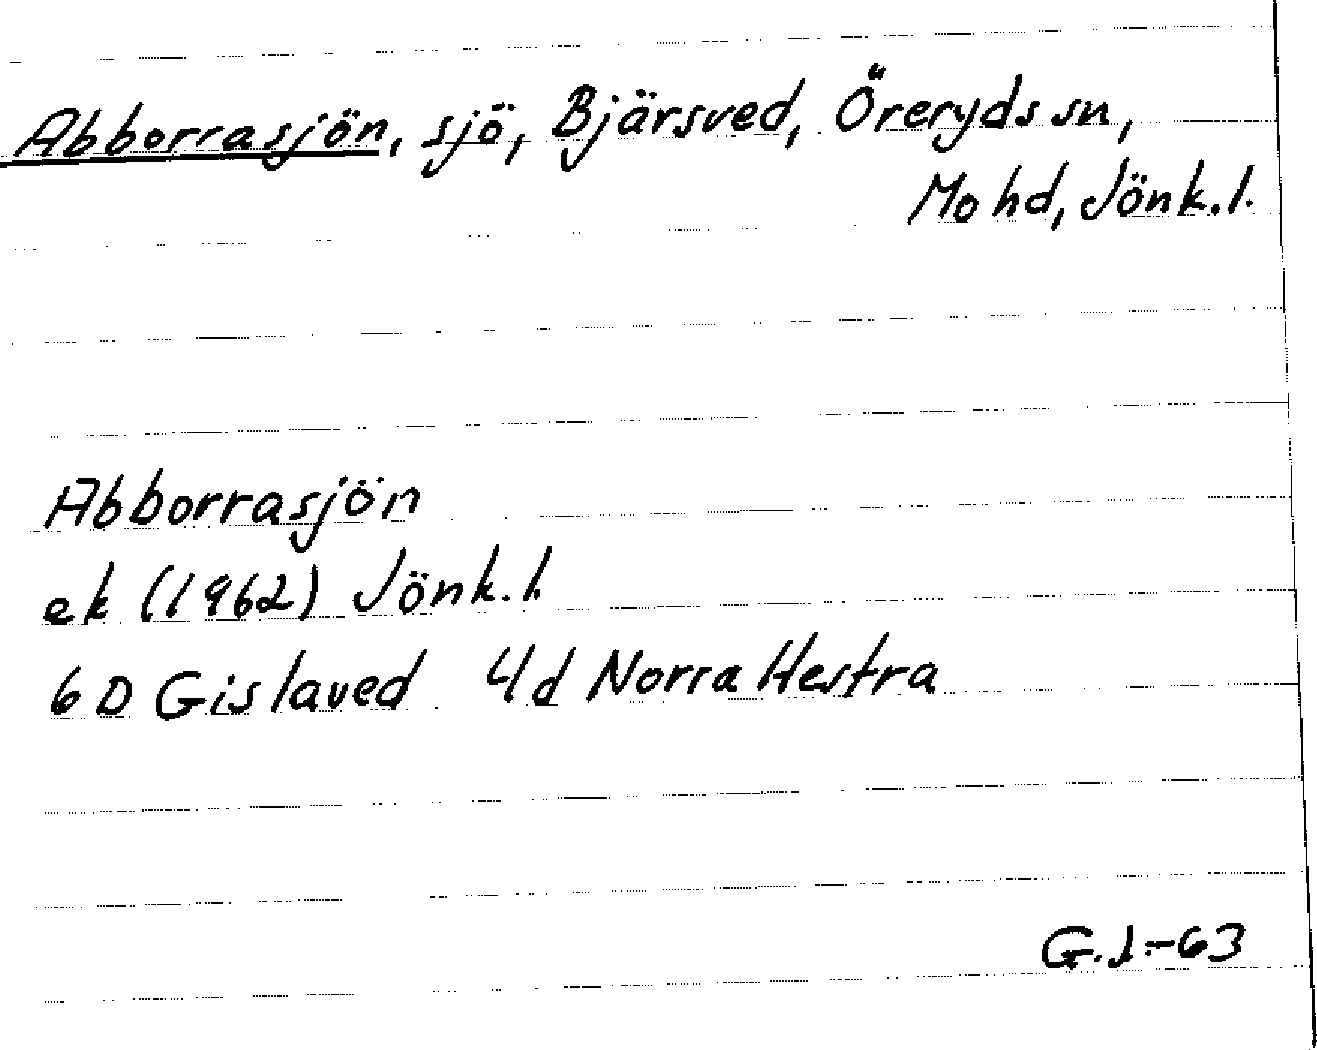 Abborrasjön, sjö, Bjärsved, Öreryds sn,
Mo hd, Jönk.l.
Abborrasjön
ek (1962) Jönk.l.
6D Gislaved 4d Norra Hestra
G.J.-63